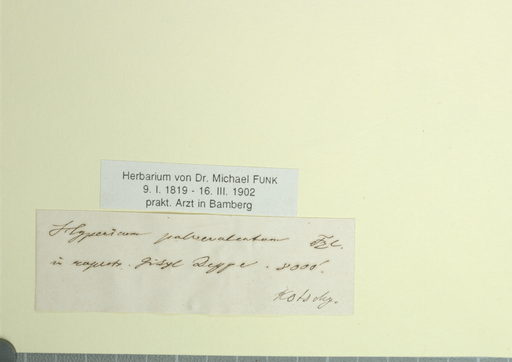 Herbarium von Dr. Michael FUNK
9. I. 1819 - 16. III. 1902
prakt. Arzt in Bamberg
Hypericum pulverulentum Fzl.
in rupestr. Gisyl Deppe. 3000'.
Kotschy.